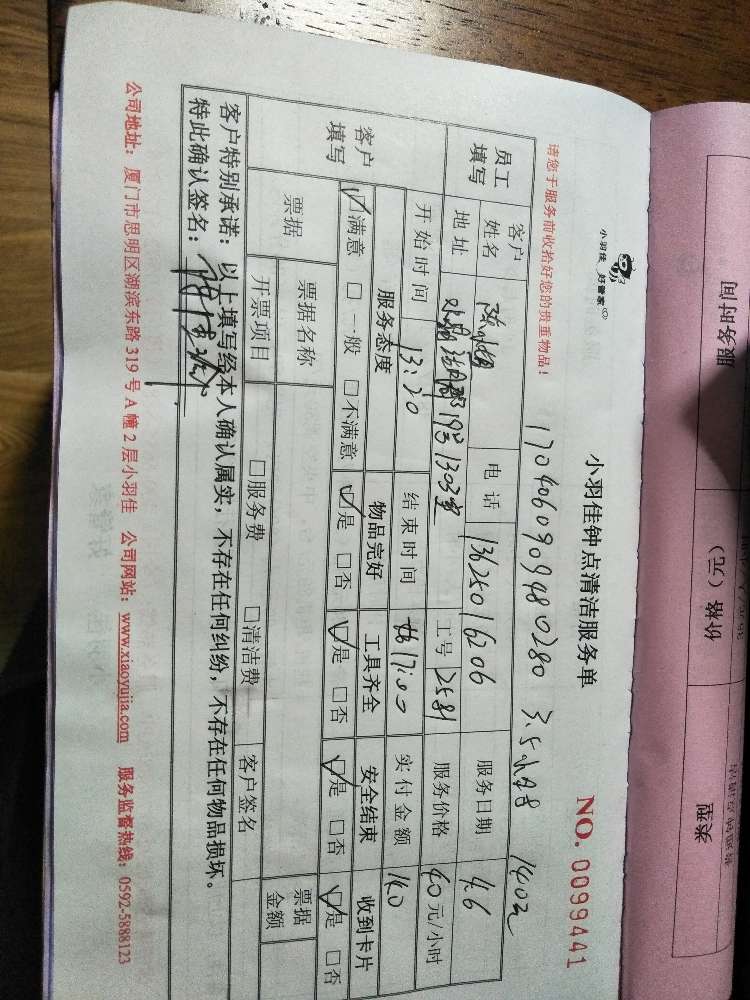 小羽佳 好管家
小羽佳钟点清洁服务单
NO. 0099441
请您于服务前收拾好您的贵重物品！
1704060909480280 3.5小时 140元
员工填写 客户姓名 电话 13625016206 服务日期 4.6
地址 19号1303室 工号 2581 服务价格 40元/小时
开始时间 13:20 结束时间 17:00 实付金额 140
客户填写 服务态度 物品完好 工具齐全 安全结束 收到卡片
☑满意 □一般 □不满意 ☑是 □否 ☑是 □否 ☑是 □否 ☑是 □否
票据 票据名称 □服务费 □清洁费 客户签名 票据金额
开票项目
客户特别承诺：以上填写经本人确认属实，不存在任何纠纷，不存在任何物品损坏。
特此确认签名：
公司地址：厦门市思明区湖滨东路319号A幢2层小羽佳 公司网站：www.xiaoyujia.com 服务监督热线：0592-5888123
服务时间
价格（元）
类型